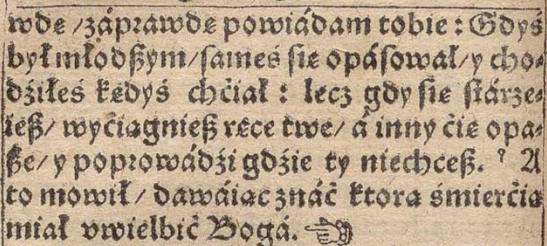 wdę /záprawdę powiádam tobie : Gdyś
był młodßym/ sameś się opásował/ y cho-
dźiłeś kędyś chćiał : lecz gdy się stárze-
ieß/ wyćiągnieß ręce twe/ á inny ćię opa-
ße/ y poprowádźi gdźie ty niechceß. A
to mowił/ dawáiąc znáć ktorą śmierćią
miał vwielbić Bogá. ☜